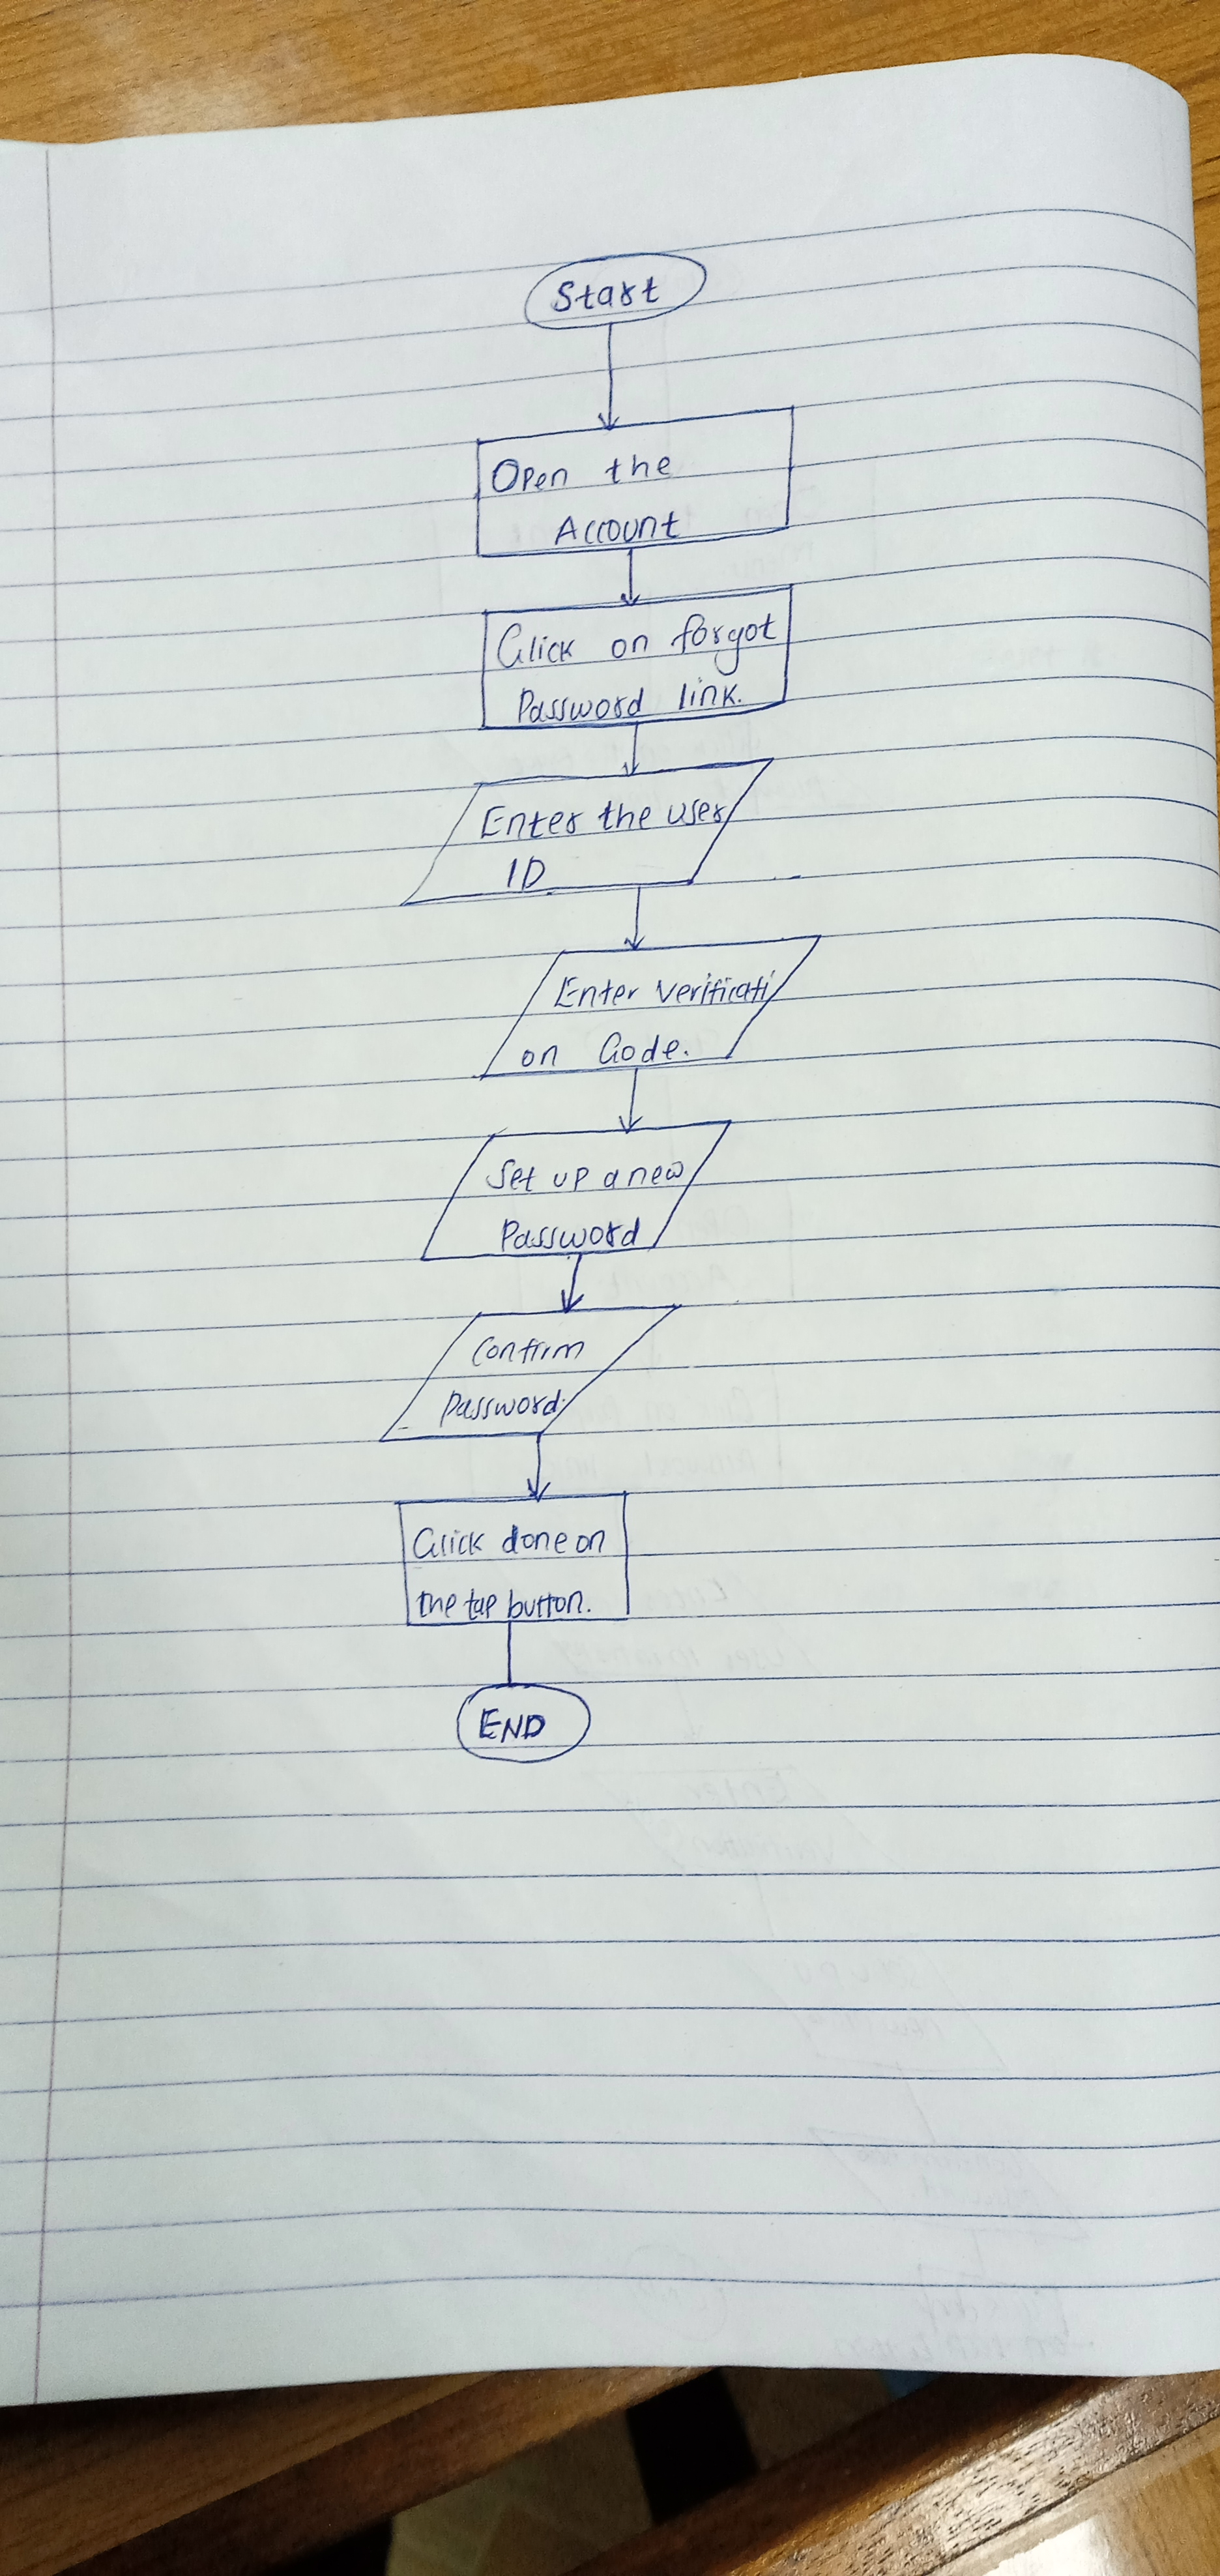 Start
Open the
Account
Click on forgot
Password link.
Enter the user
ID
Enter verificati
on Code.
Set up a new
Password
Confirm
Password.
Click done on
the tap button.
END